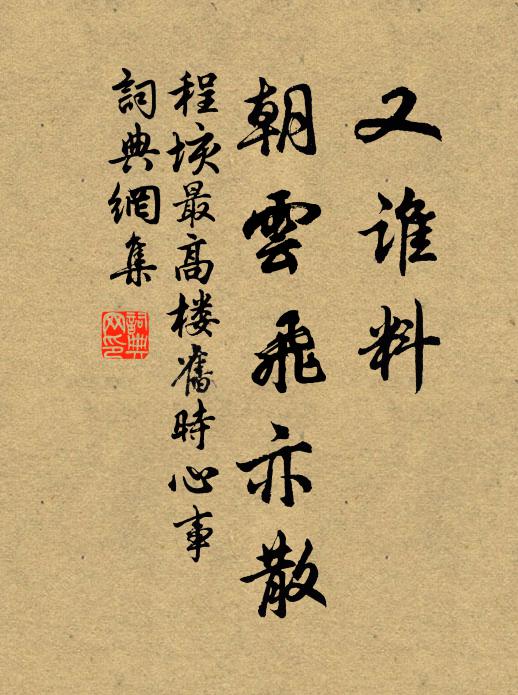 又谁料
朝雲飛亦散
程垓最高楼舊時心事
詞典網集
詞典网印